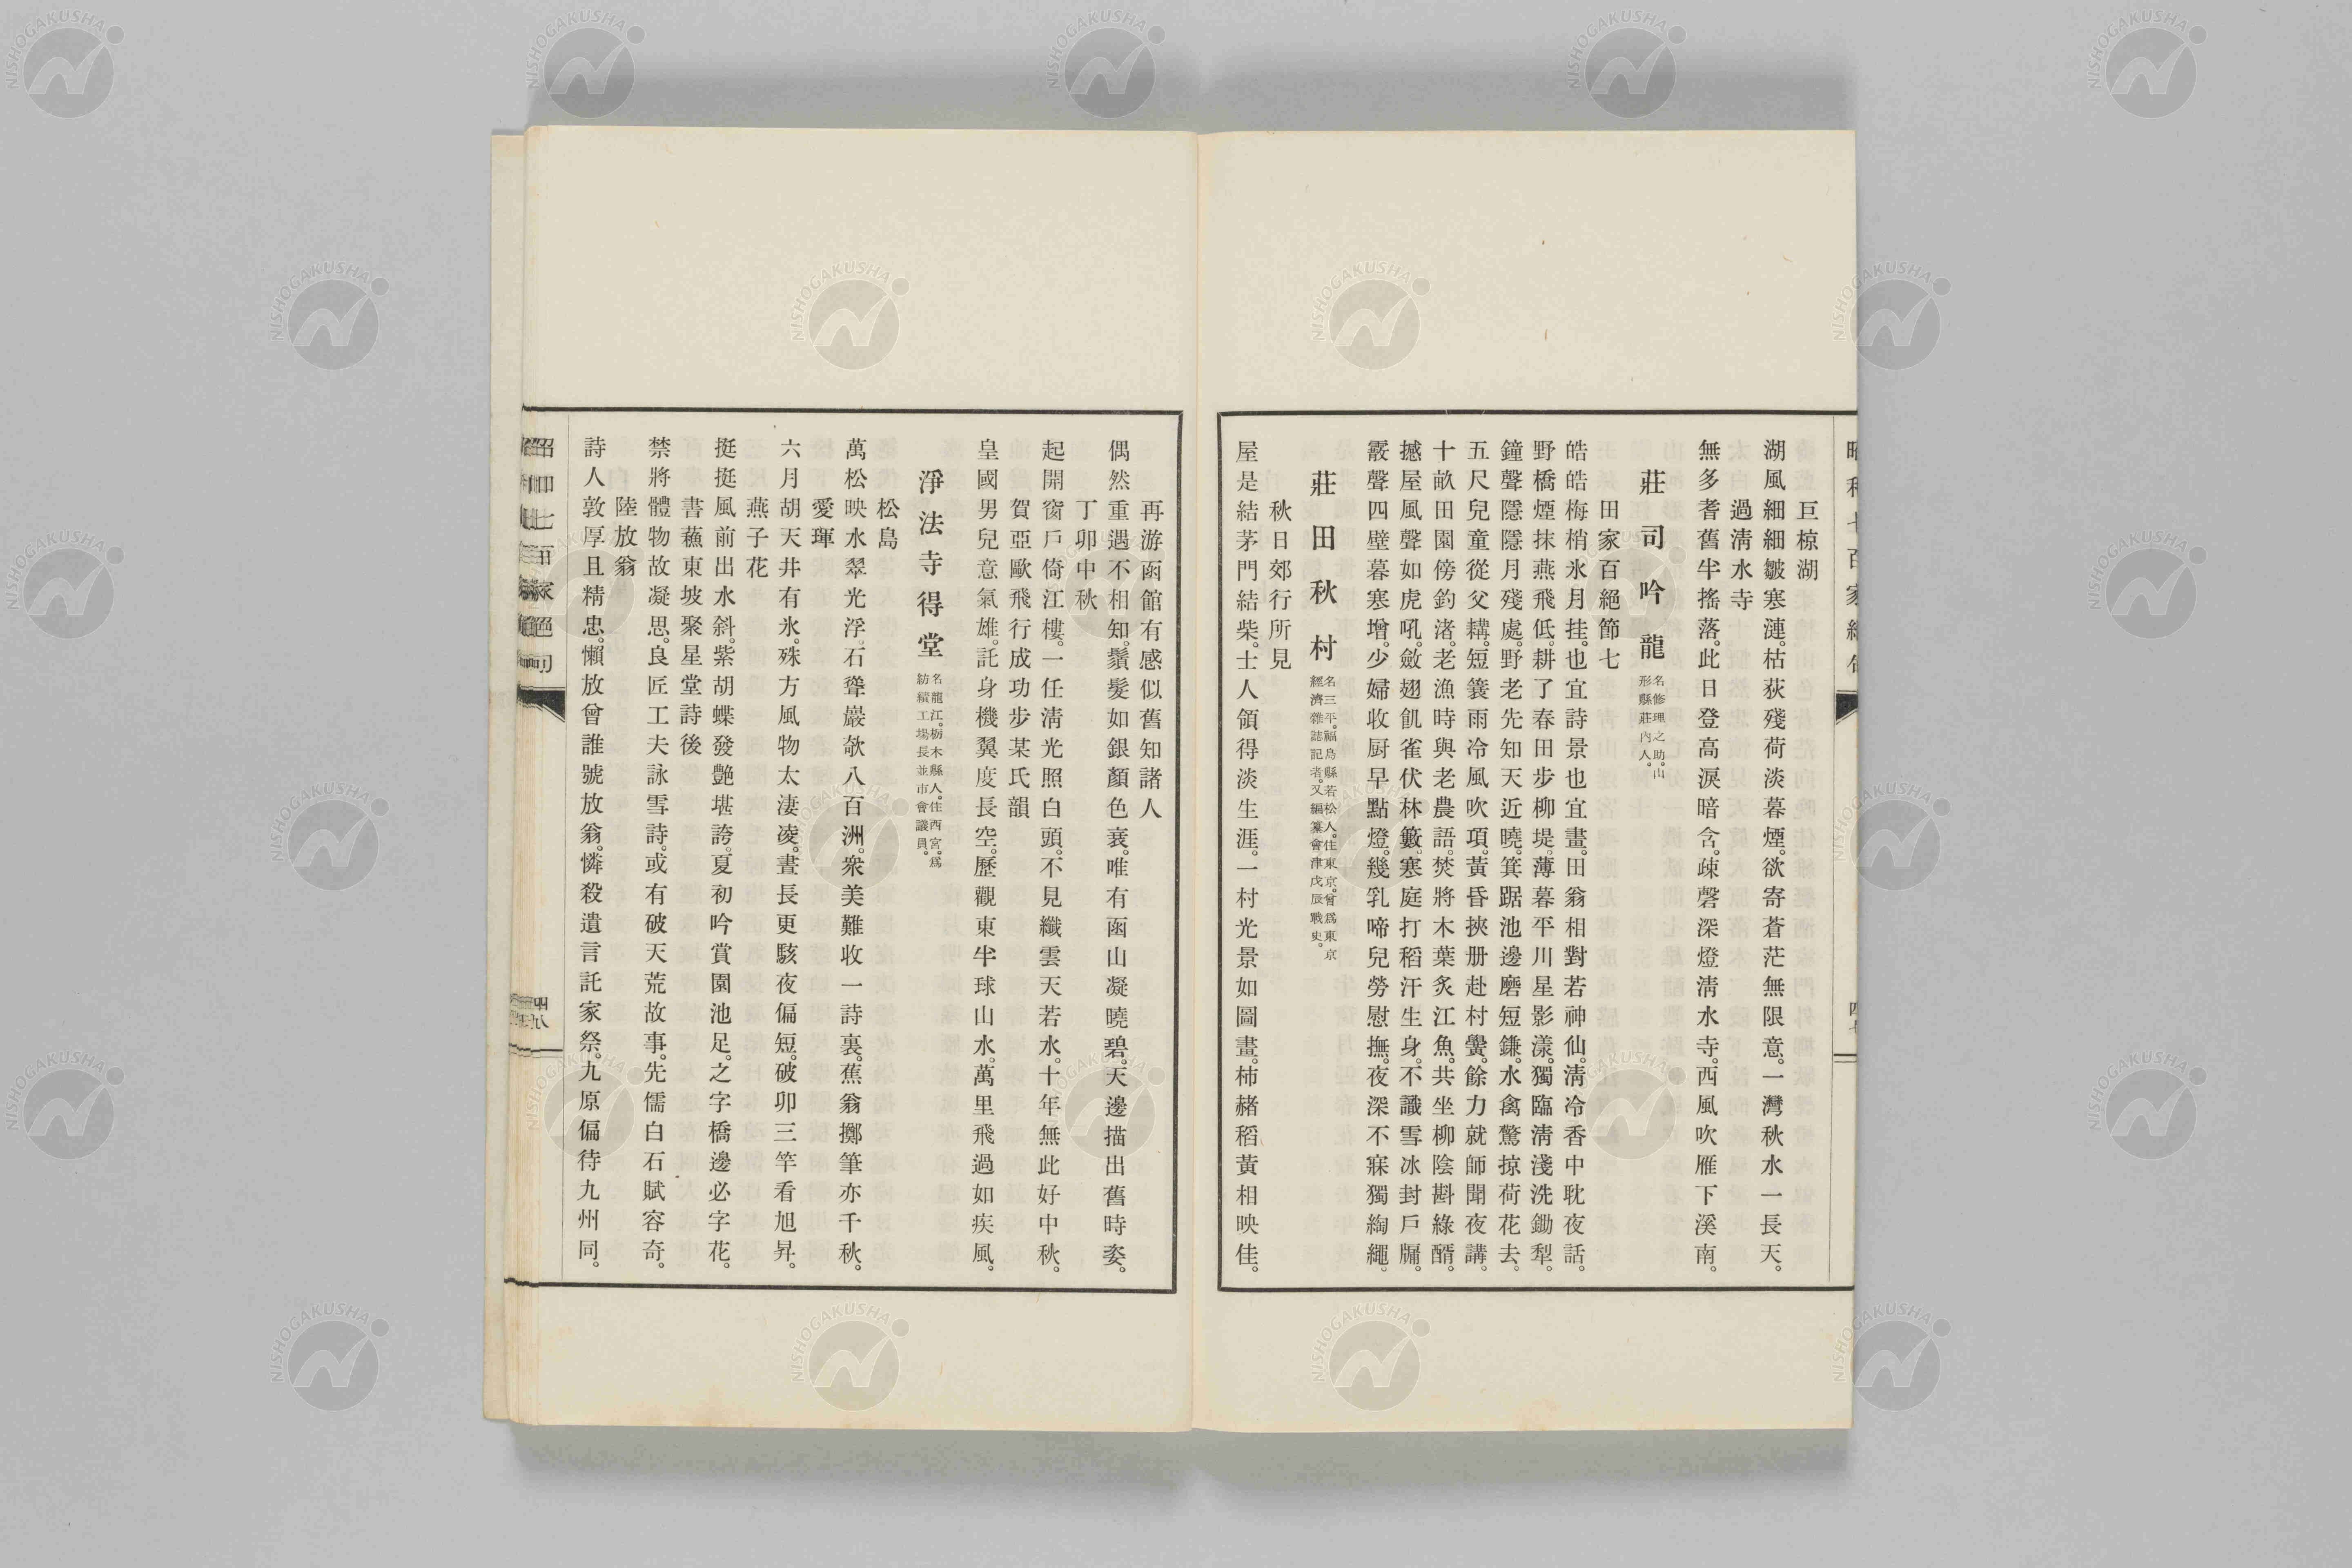 昭和七百家絕句
四七
巨椋湖
湖風細細皺寒漣。枯荻殘荷淡暮煙。欲寄蒼茫無限意。一灣秋水一長天。
過淸水寺
無多耆舊半搖落。此日登高淚暗含。疎磬深燈淸水寺。西風吹雁下溪南。
莊司吟龍
名修理之助。山
形縣莊內人。
田家百絕節七
皓皓梅梢氷月挂。也宜詩景也宜畫。田翁相對若神仙。淸冷香中耽夜話。
野橋煙抹燕飛低。耕了春田步柳堤。薄暮平川星影漾。獨臨淸淺洗鋤犁。
鐘聲隱隱月殘處。野老先知天近曉。箕踞池邊磨短鎌。水禽驚掠荷花去。
五尺兒童從父耩。短簑雨冷風吹項。黃昏挾册赴村黌。餘力就師聞夜講。
十畝田園傍釣渚。老漁時與老農語。焚將木葉炙江魚。共坐柳陰斟綠醑。
撼屋風聲如虎吼。斂翅飢雀伏林籔。寒庭打稻汗生身。不識雪冰封戶牖。
霰聲四壁暮寒增。少婦收厨早點燈。幾乳啼兒勞慰撫。夜深不寐獨綯繩。
莊田秋村
名三平。福島縣若松人。住東京。曾爲東京
經濟雜誌記者。又編纂會津戊辰戰史。
秋日郊行所見
屋是結茅門結柴。士人領得淡生涯。一村光景如圖畫。柿赭稻黃相映佳。
再游函館有感似舊知諸人
偶然重遇不相知。鬚髮如銀顏色衰。唯有函山凝曉碧。天邊描出舊時姿。
丁卯中秋
起開窗戶倚江樓。一任淸光照白頭。不見纖雲天若水。十年無此好中秋。
賀亞歐飛行成功步某氏韻
皇國男兒意氣雄。託身機翼度長空。歷觀東半球山水。萬里飛過如疾風。
淨法寺得堂
名龍江。栃木縣人。住西宮。爲
紡績工場長並市會議員。
松島
萬松映水翠光浮。石聳巖欹八百洲。衆美難收一詩裏。蕉翁擲筆亦千秋。
愛琿
六月胡天井有氷。殊方風物太凄凌。晝長更駭夜偏短。破卯三竿看旭昇。
燕子花
挺挺風前出水斜。紫胡蝶發艷堪誇。夏初吟賞園池足。之字橋邊必字花。
書蘓東坡聚星堂詩後
禁將體物故凝思。良匠工夫詠雪詩。或有破天荒故事。先儒白石賦容奇。
陸放翁
詩人敦厚且精忠。懶放曾誰號放翁。憐殺遺言託家祭。九原偏待九州同。
昭和七百家絕句
四八